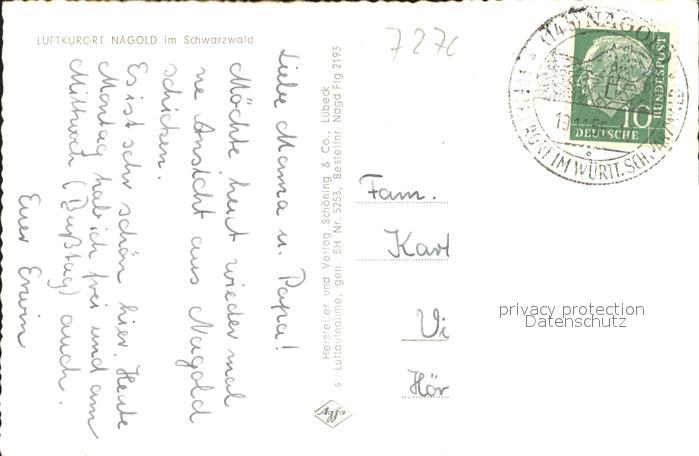 LUFTKURORT NAGOLD im Schwarzwald
Liebe Mama u. Papa!
Möchte heut wieder mal
ne Ansicht aus Nagold
schicken.
Es ist sehr schön hier. Heute
Montag hab ich frei und am
Mittwoch (Bußtag) auch.
Euer Erwin
Hersteller und Verlag Schöning & Co., Lübeck
s Luftaufnahme, gen. SH Nr. 5253, Bestellnr. Nagd Flg 2193
Agfa
7270
(14b) NAGOLD
LUFTKURORT IM WÜRTT. SCHWARZWALD
DEUTSCHE
BUNDESPOST
10
Fam.
Karl
Vi
Hör
privacy protection
Datenschutz